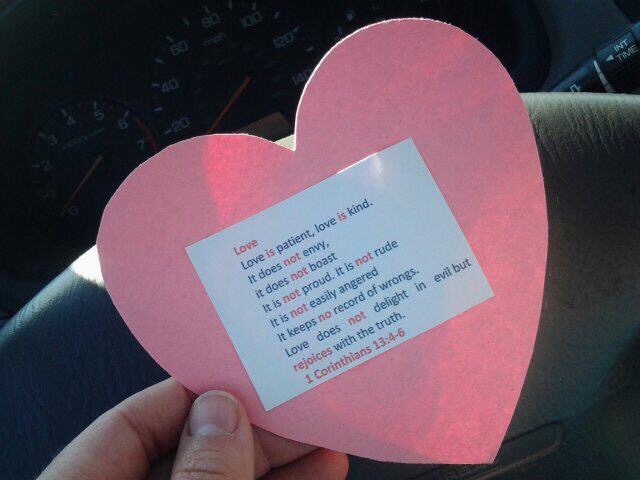 Love
Love is patient, love is kind.
It does not envy,
it does not boast
It is not proud. It is not rude
It is not easily angered
It keeps no record of wrongs.
Love does not delight in evil but
rejoices with the truth.
1 Corinthians 13:4-6
60
mph
40
20
120
140
3
4
5
6
7
2
1
0
INT
TIME